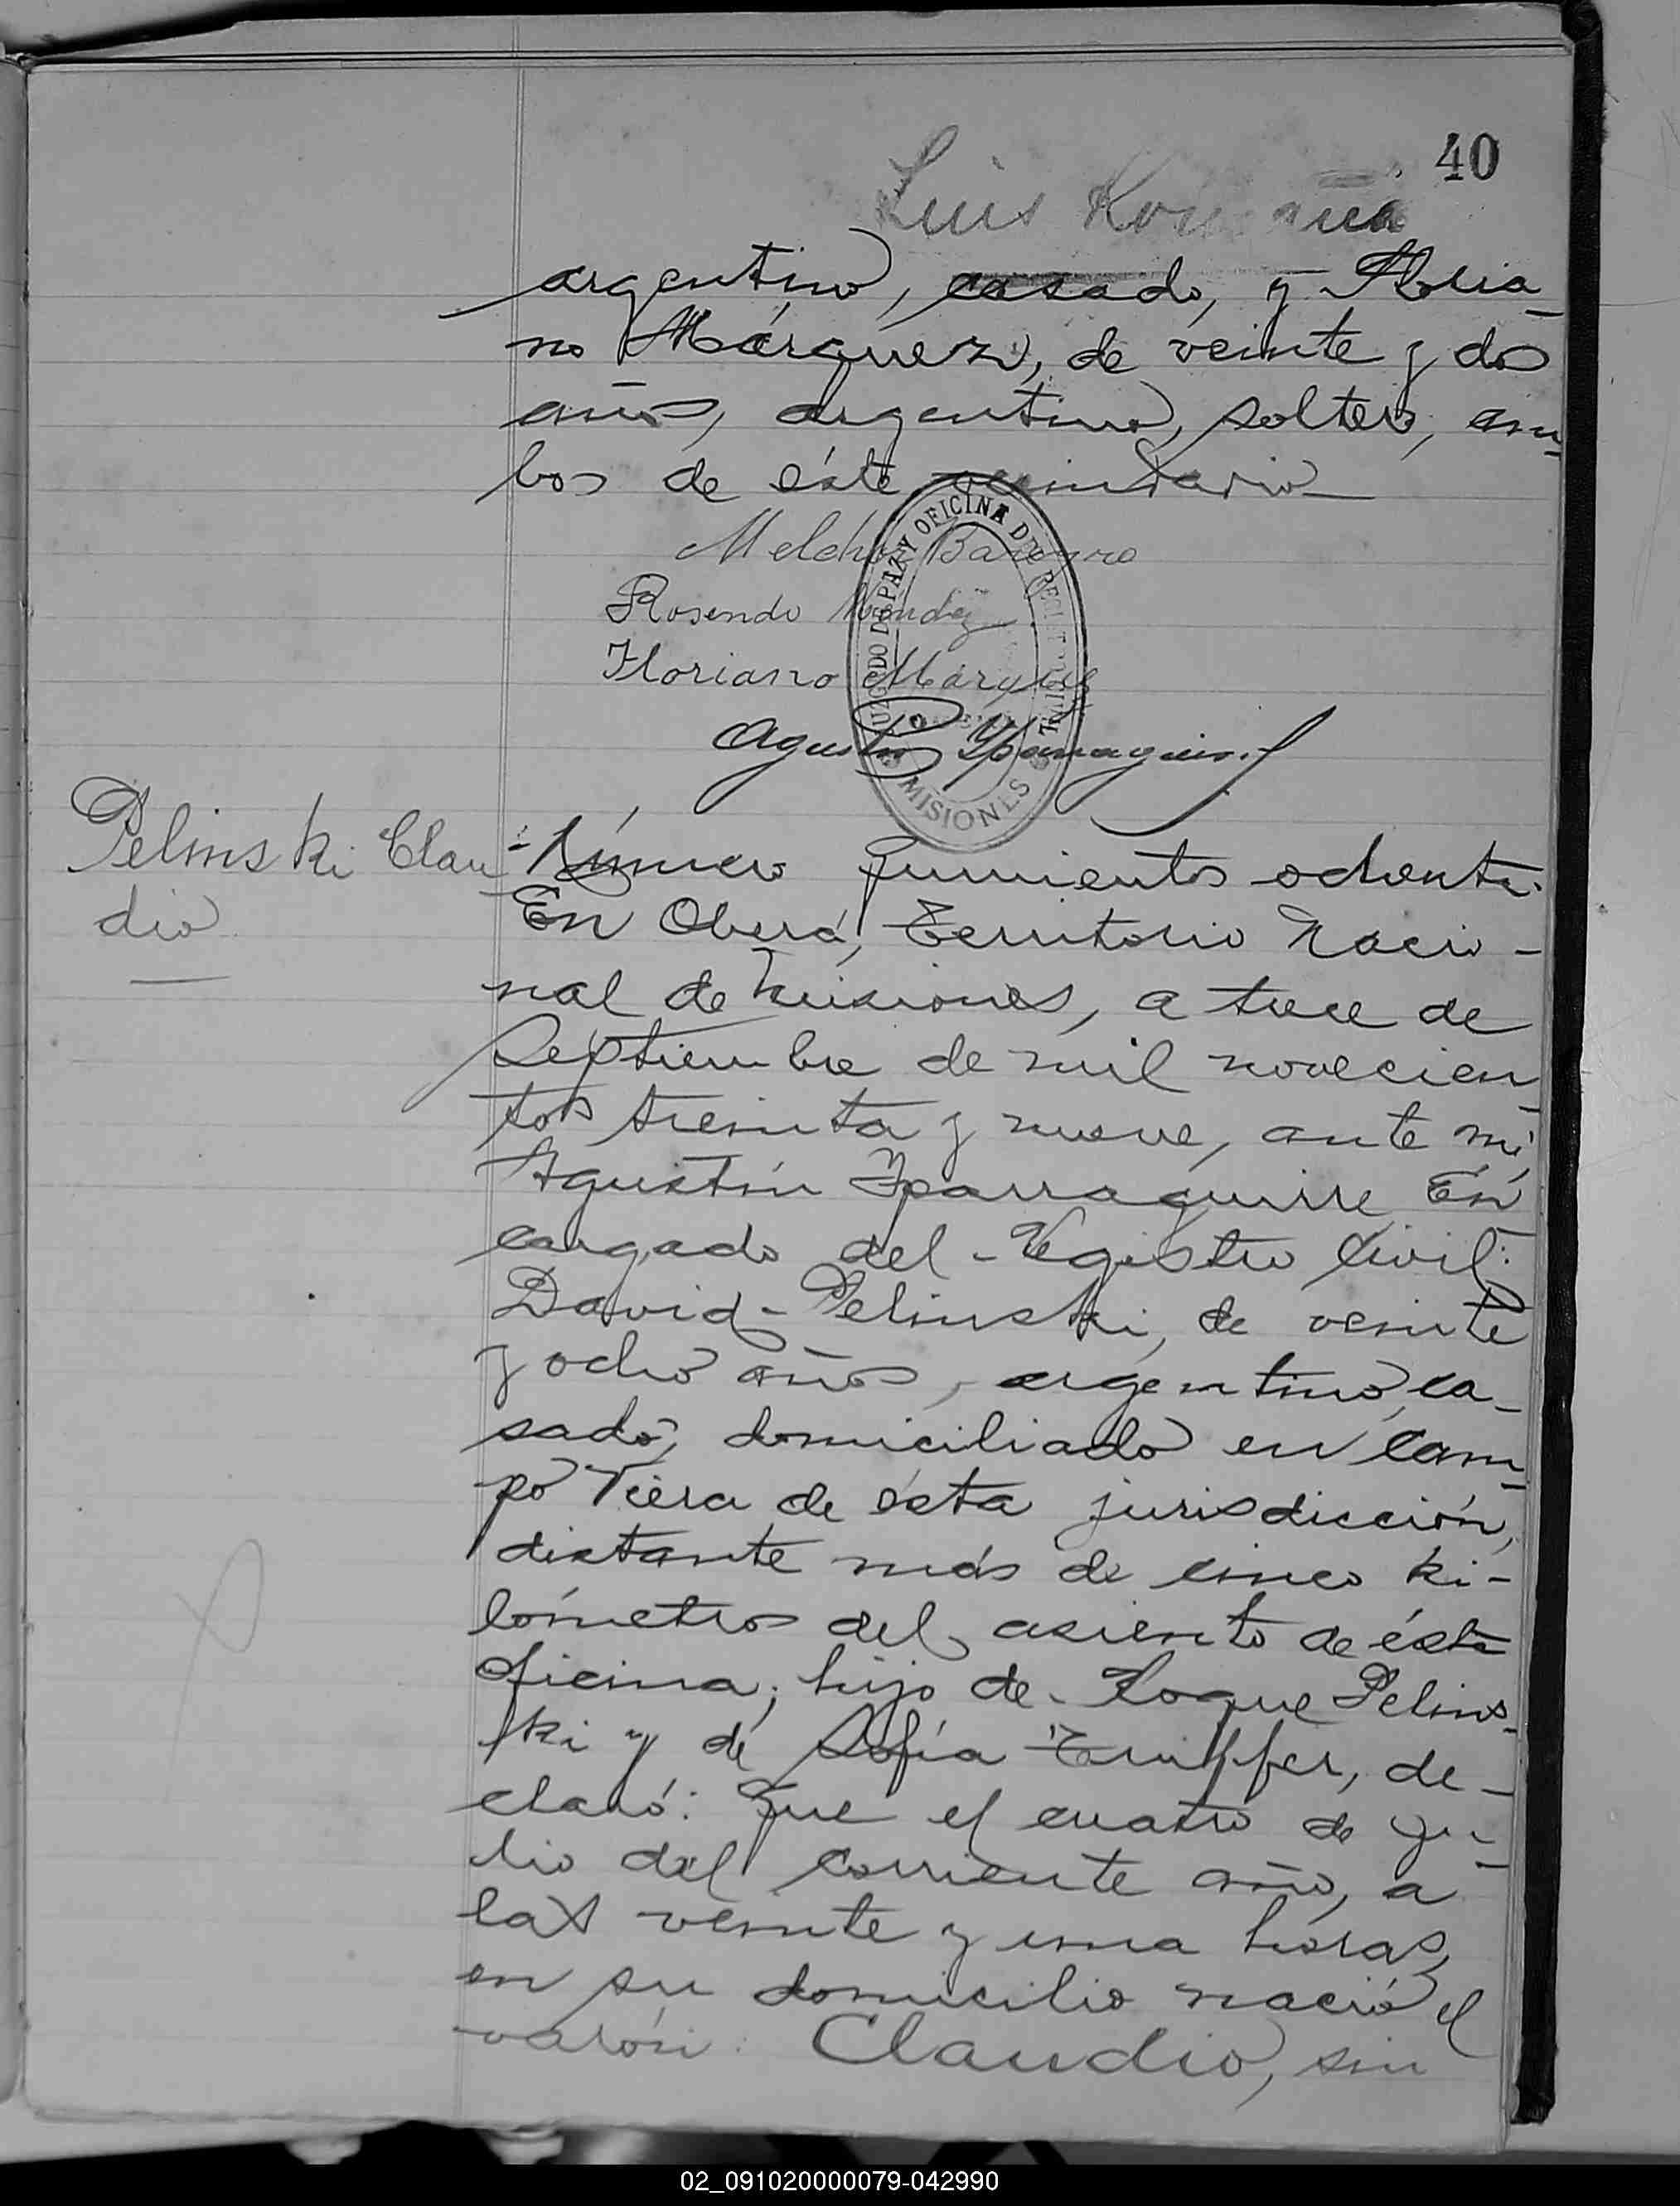 40
Luis
argentino, casado, y Floria-
no Márquez, de veinte y dos
años, argentino, soltero, am-
bos de éste vecindario
Melchor
Rosendo Mendez
Floriano Marquez
JUZGADO DE PAZ Y OFICINA DEL REGISTRO CIVIL
MISIONES
Agustín Yparraguirre
Pelinski Clau-
dio
Número quinientos ochenta.
En Oberá, Territorio Nacio-
nal de Misiones, a trece de
Septiembre de mil novecien-
tos treinta y nueve, ante mí,
Agustín Yparraguirre En-
cargado del Registro Civil:
David Pelinski, de veinte
y ocho años, argentino, ca-
sado, domiciliado en Cam-
po Viera de ésta jurisdicción,
distante más de cinco ki-
lómetros del asiento de ésta
oficina; hijo de Roque Pelins-
ki y de Sofía, de-
claró: Que el cuatro de Ju-
lio del corriente año, a
las veinte y una horas,
en su domicilio nació el
varón: Claudio, sin
02_091020000079-042990